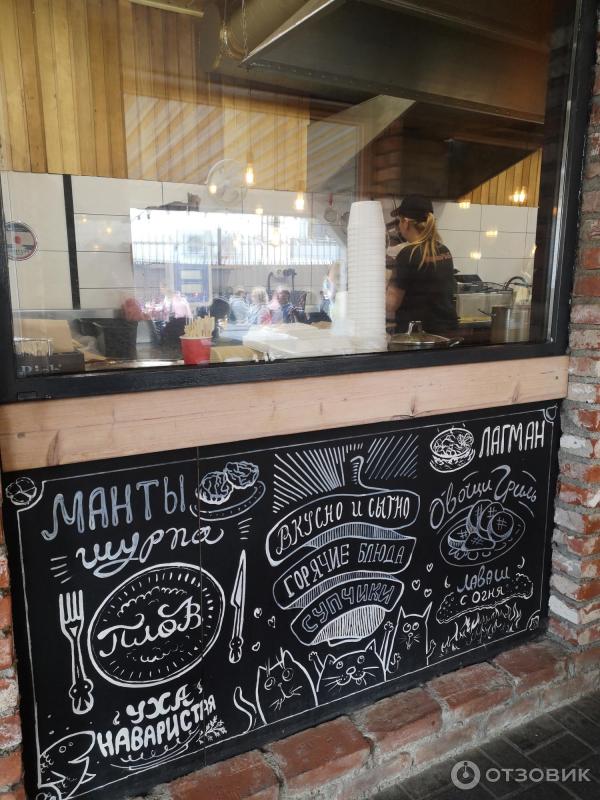 МАНТЫ
шурпа
ПЛОВ
УХА
НАВАРИСТАЯ
ВКУСНО И СЫТНО
ГОРЯЧИЕ БЛЮДА
СУПЧИКИ
ЛАГМАН
Овощи Гриль
ЛАВАШ
С ОГНЯ
ОТЗОВИК